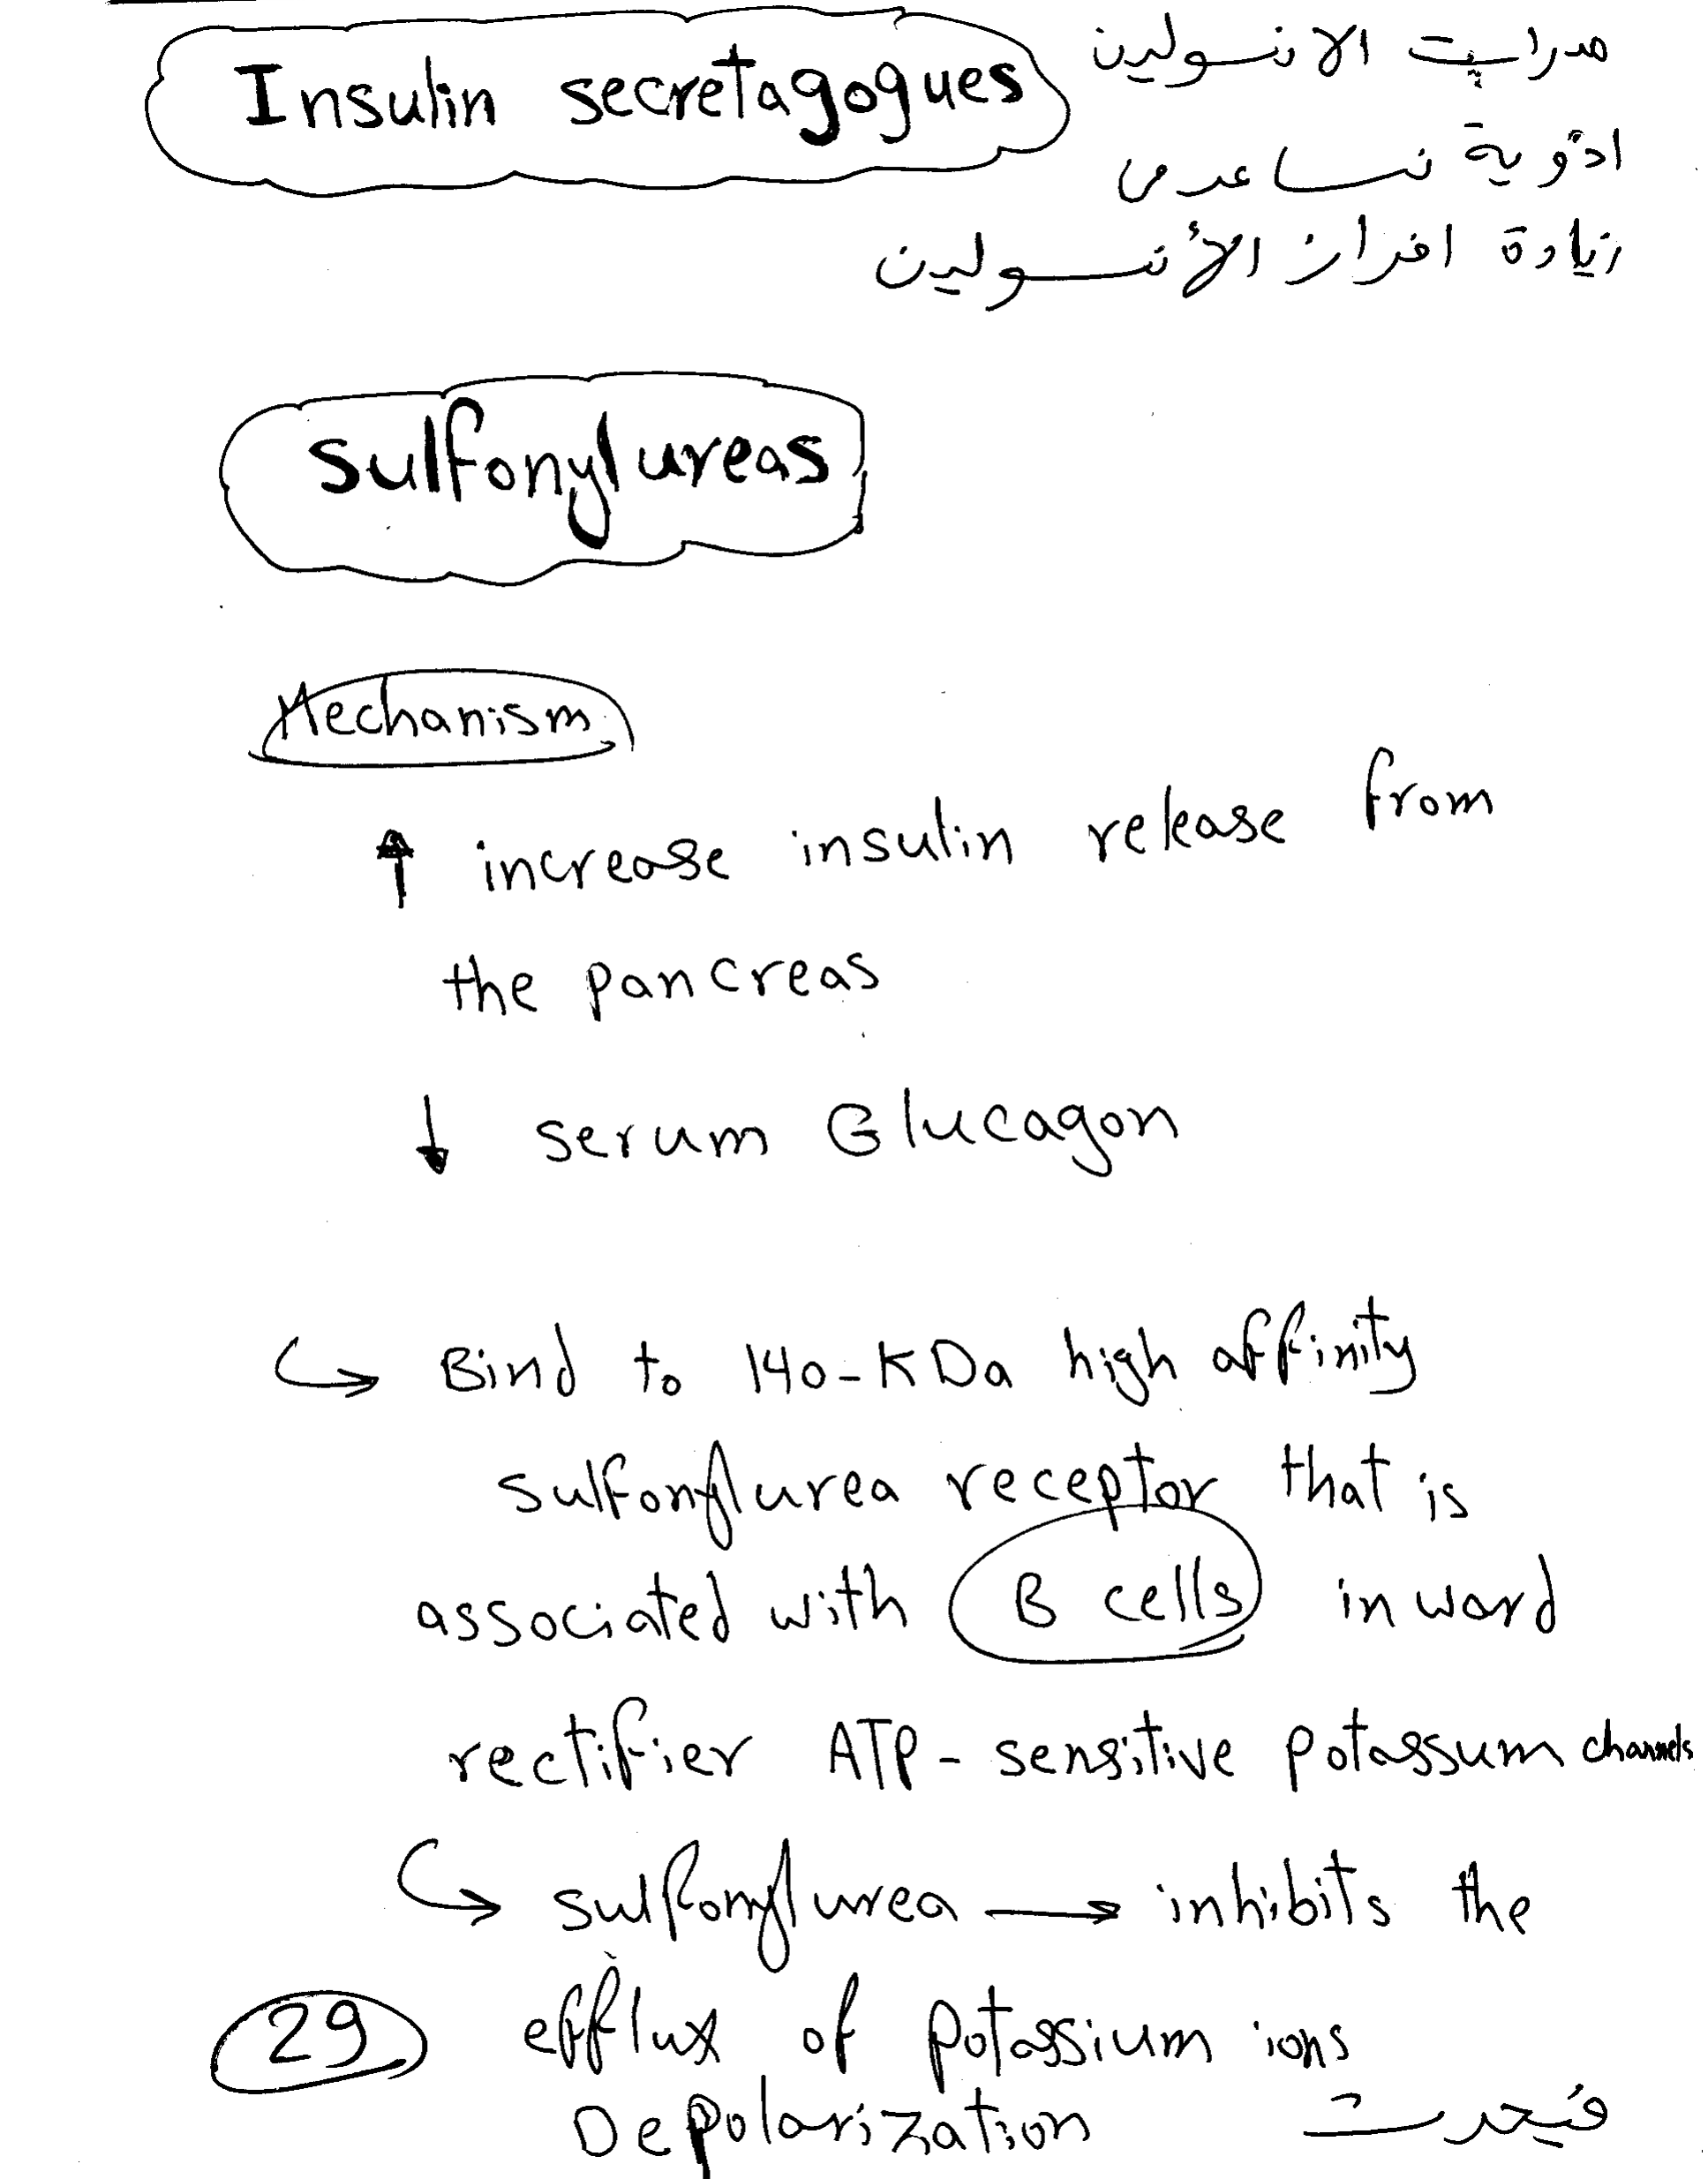 Insulin secretagogues
مدرات الانسولين
ادوية تساعد من
زيادة افراز الأنسولين
Sulfonylureas
Mechanism
↑ increase insulin release from
the pancreas
↓ serum Glucagon
↪ Bind to 140-KDa high affinity
sulfonylurea receptor that is
associated with B cells inward
rectifier ATP-sensitive potassum channels
↪ sulfonylurea → inhibits the
29 efflux of potassium ions
Depolarization فيحدث